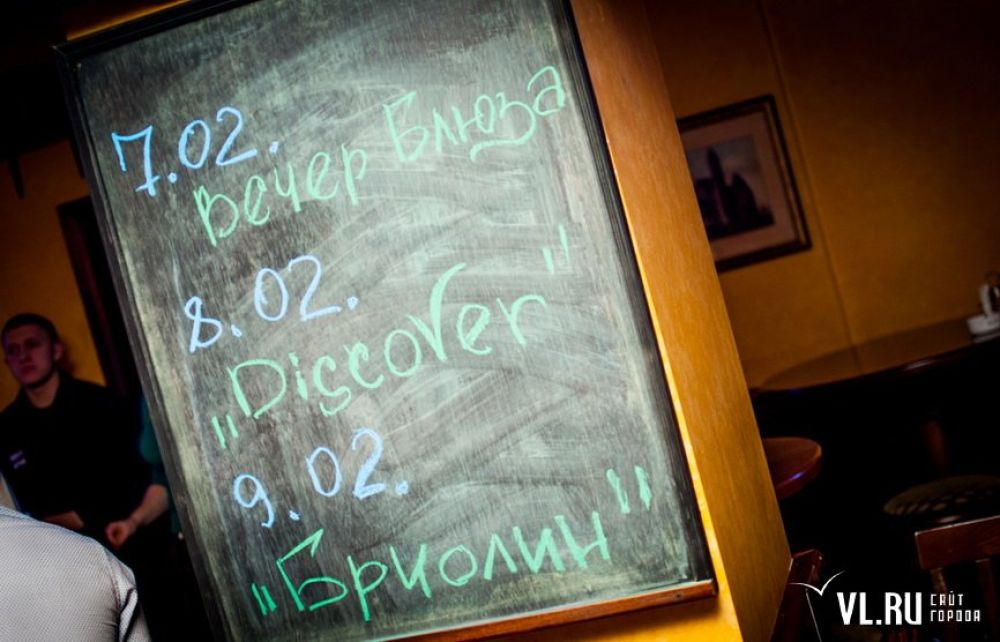 7.02.
вечер Блюза
8.02.
„Discover"
9.02.
„Бриолин"
VL.RU САЙТ
ГОРОДА